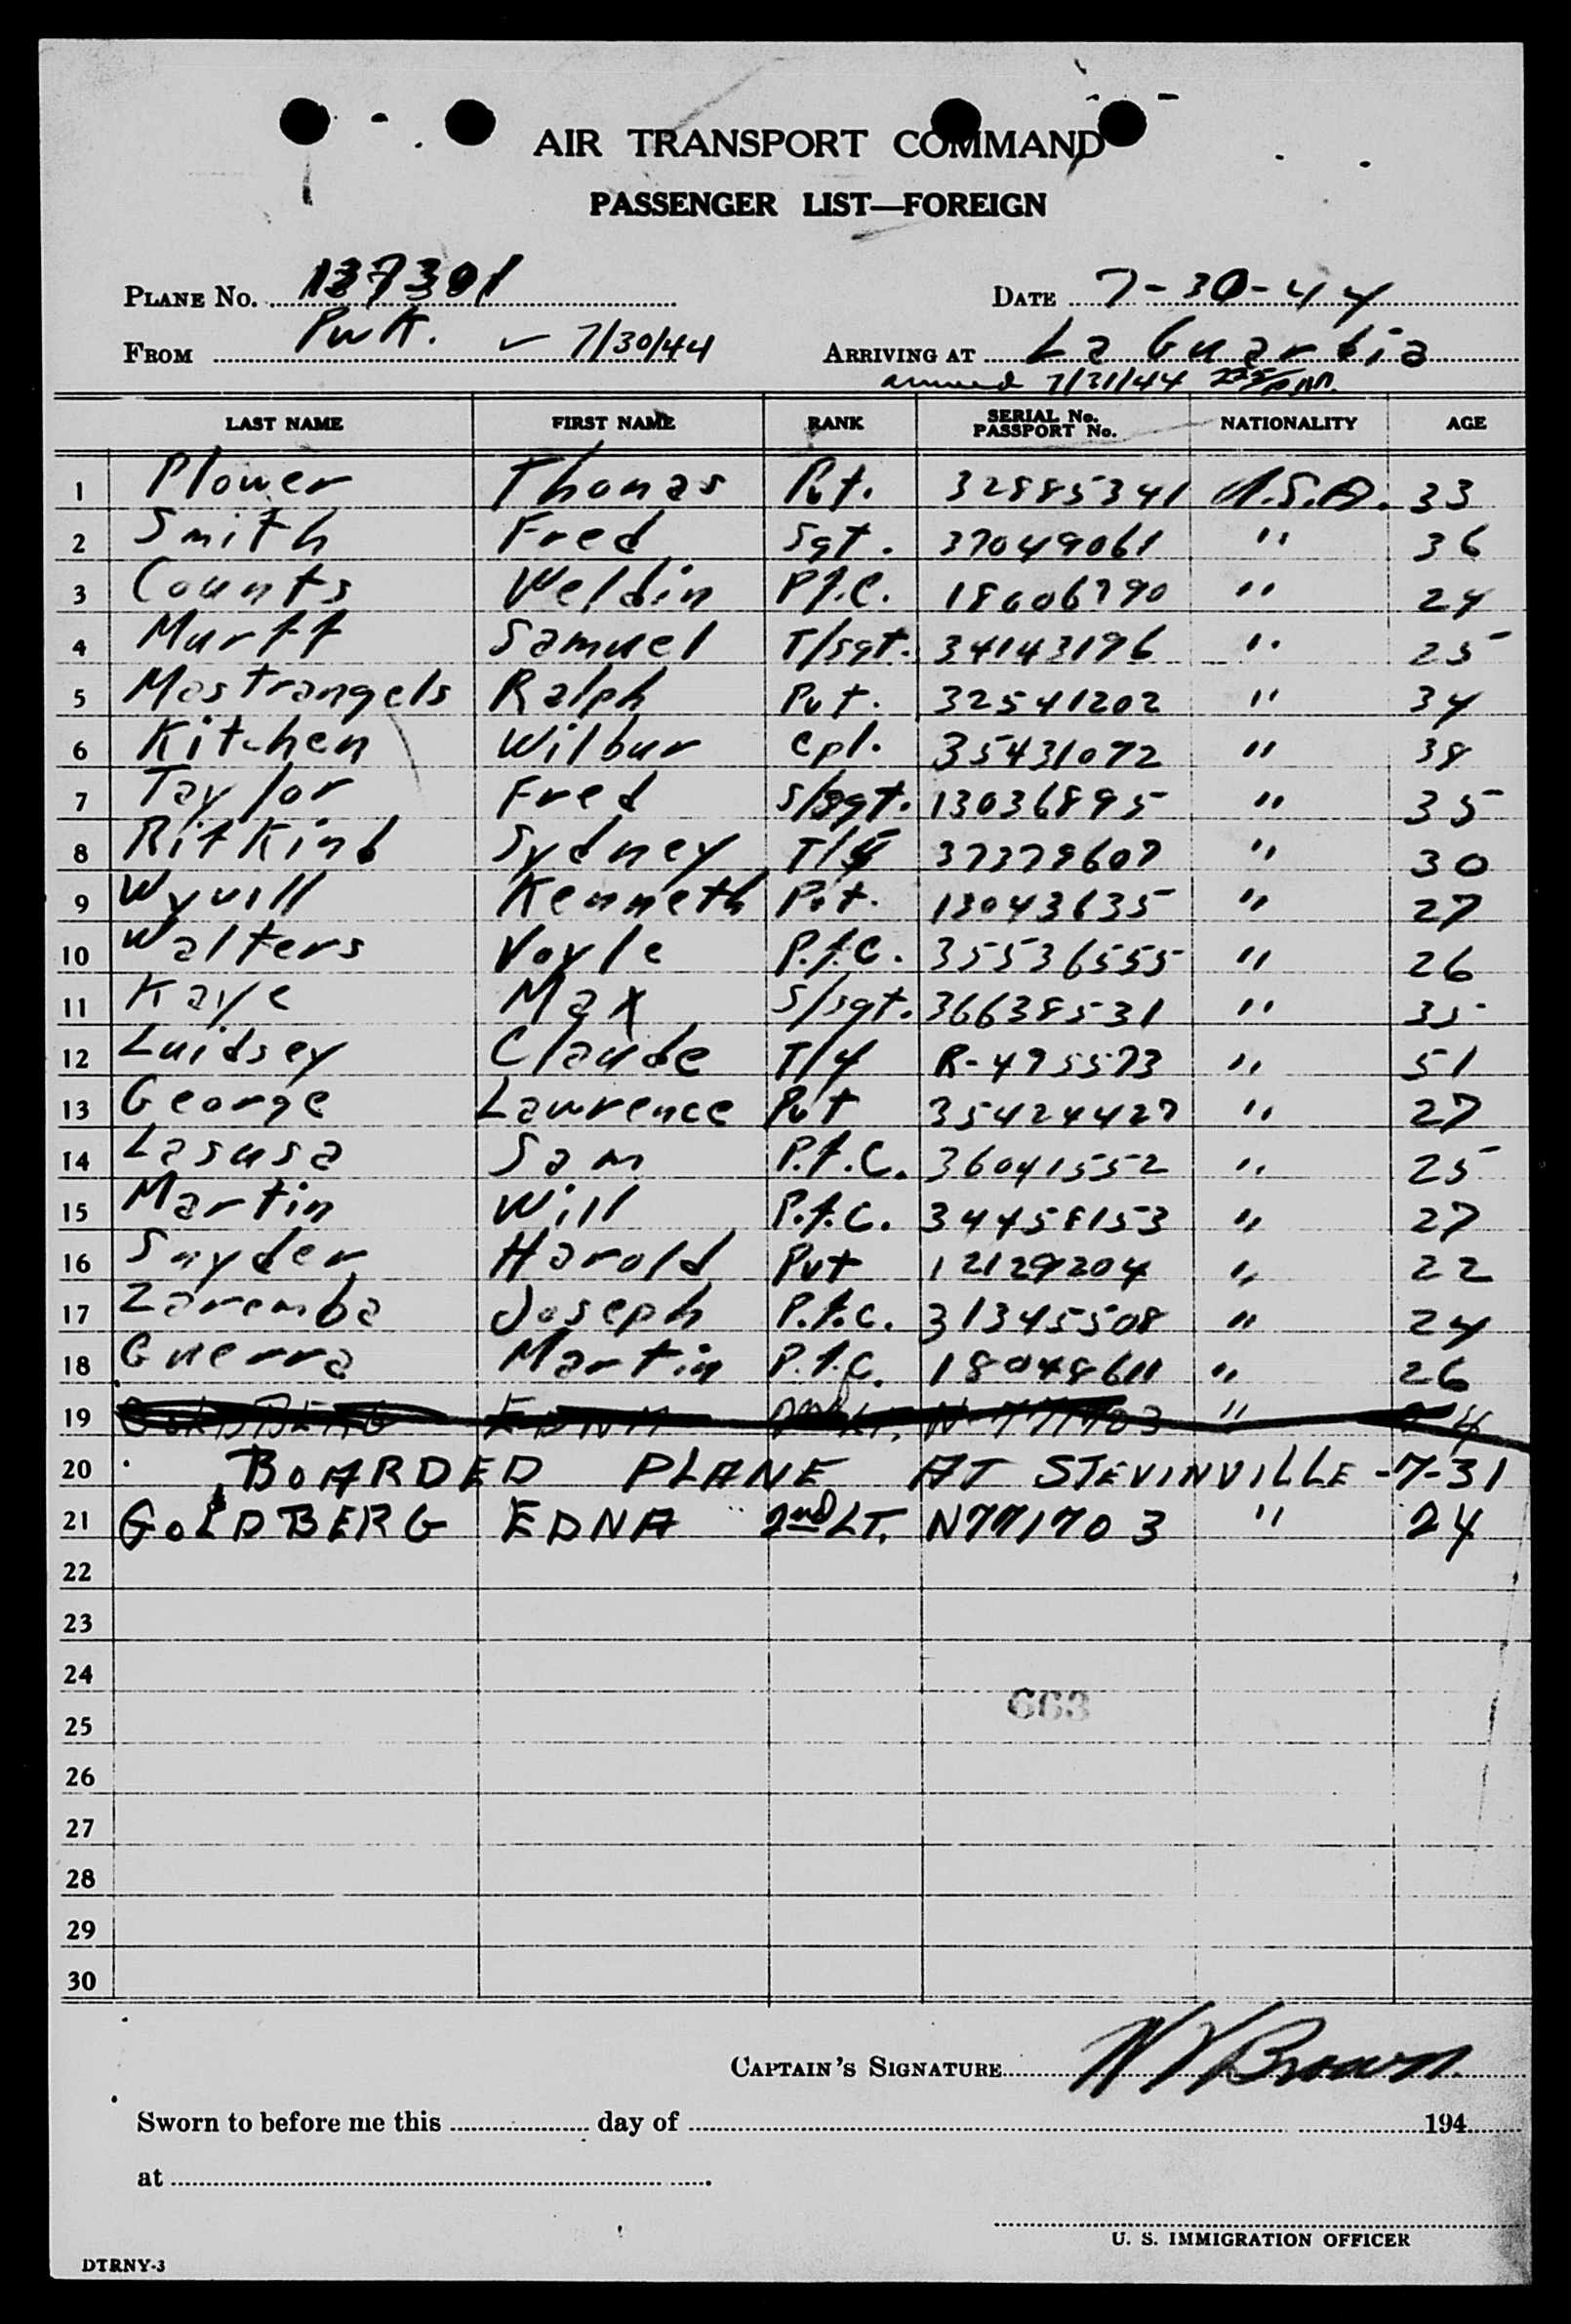 AIR TRANSPORT COMMAND
PASSENGER LIST—FOREIGN
PLANE No. 137301 DATE 7-30-44
FROM PWK. ✓ 7/30/44 ARRIVING AT La Guardia
arrived 7/31/44 225 PM.
LAST NAME FIRST NAME RANK SERIAL No. PASSPORT No. NATIONALITY AGE
1 Plower Thomas Pvt. 32885341 U.S.A. 33
2 Smith Fred Sgt. 37049061 " 36
3 Counts Weldin Pfc. 18606790 " 24
4 Murff Samuel T/sgt. 34143196 " 25
5 Mastrangels Ralph Pvt. 32541202 " 34
6 Kitchen Wilbur Cpl. 35431072 " 38
7 Taylor Fred S/sgt. 13036895 " 35
8 Rifkind Sydney T/4 37379607 " 30
9 Wyvill Kenneth Pvt. 13043635 " 27
10 Walters Voyle P.f.C. 35536555 " 26
11 Kaye Max S/sgt. 36638531 " 35
12 Luidsey Claude T/4 R-495573 " 51
13 George Lawrence Pvt 35424427 " 27
14 Lasusa Sam P.f.C. 36041552 " 25
15 Martin Will P.f.C. 34458153 " 27
16 Snyder Harold Pvt 12129204 " 22
17 Zaremba Joseph P.f.C. 31345508 " 24
18 Guerra Martin P.f.C. 18048611 " 26
19 GOLDBERG EDNA 2nd LT. N771703 " 24
20 BOARDED PLANE AT STEVINVILLE -7-31
21 GOLDBERG EDNA 2nd LT. N771703 " 24
22
23
24
663
25
26
27
28
29
30
CAPTAIN'S SIGNATURE Brown
Sworn to before me this day of 194
at
U. S. IMMIGRATION OFFICER
DTRNY-3